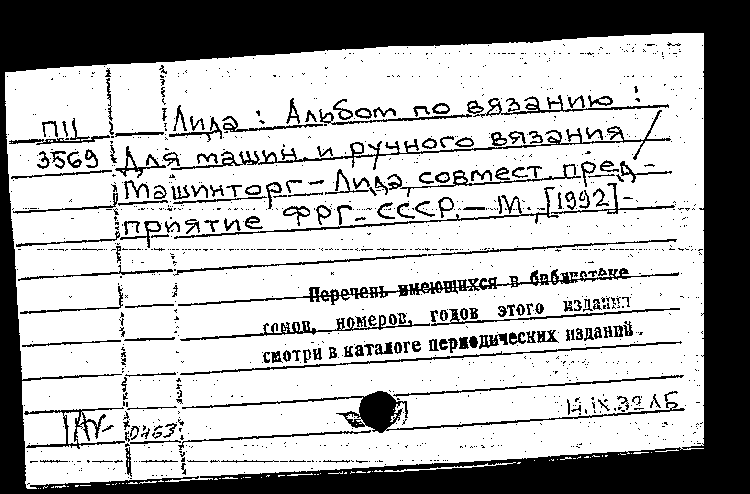 П11 Лида : Альбом по вязанию :
3569 Для машин. и ручного вязания /
Машинторг - Лида, совмест. пред-
приятие ФРГ - СССР. - М., [1992] -
Перечень имеющихся в библиотеке
томов, номеров, годов этого издания
смотри в каталоге периодических изданий.
0463